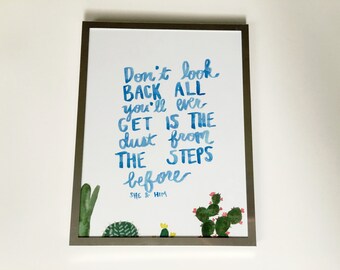 Don't look
BACK ALL
you'll ever
GET IS THE
dust from
THE STEPS
before
THE HIM